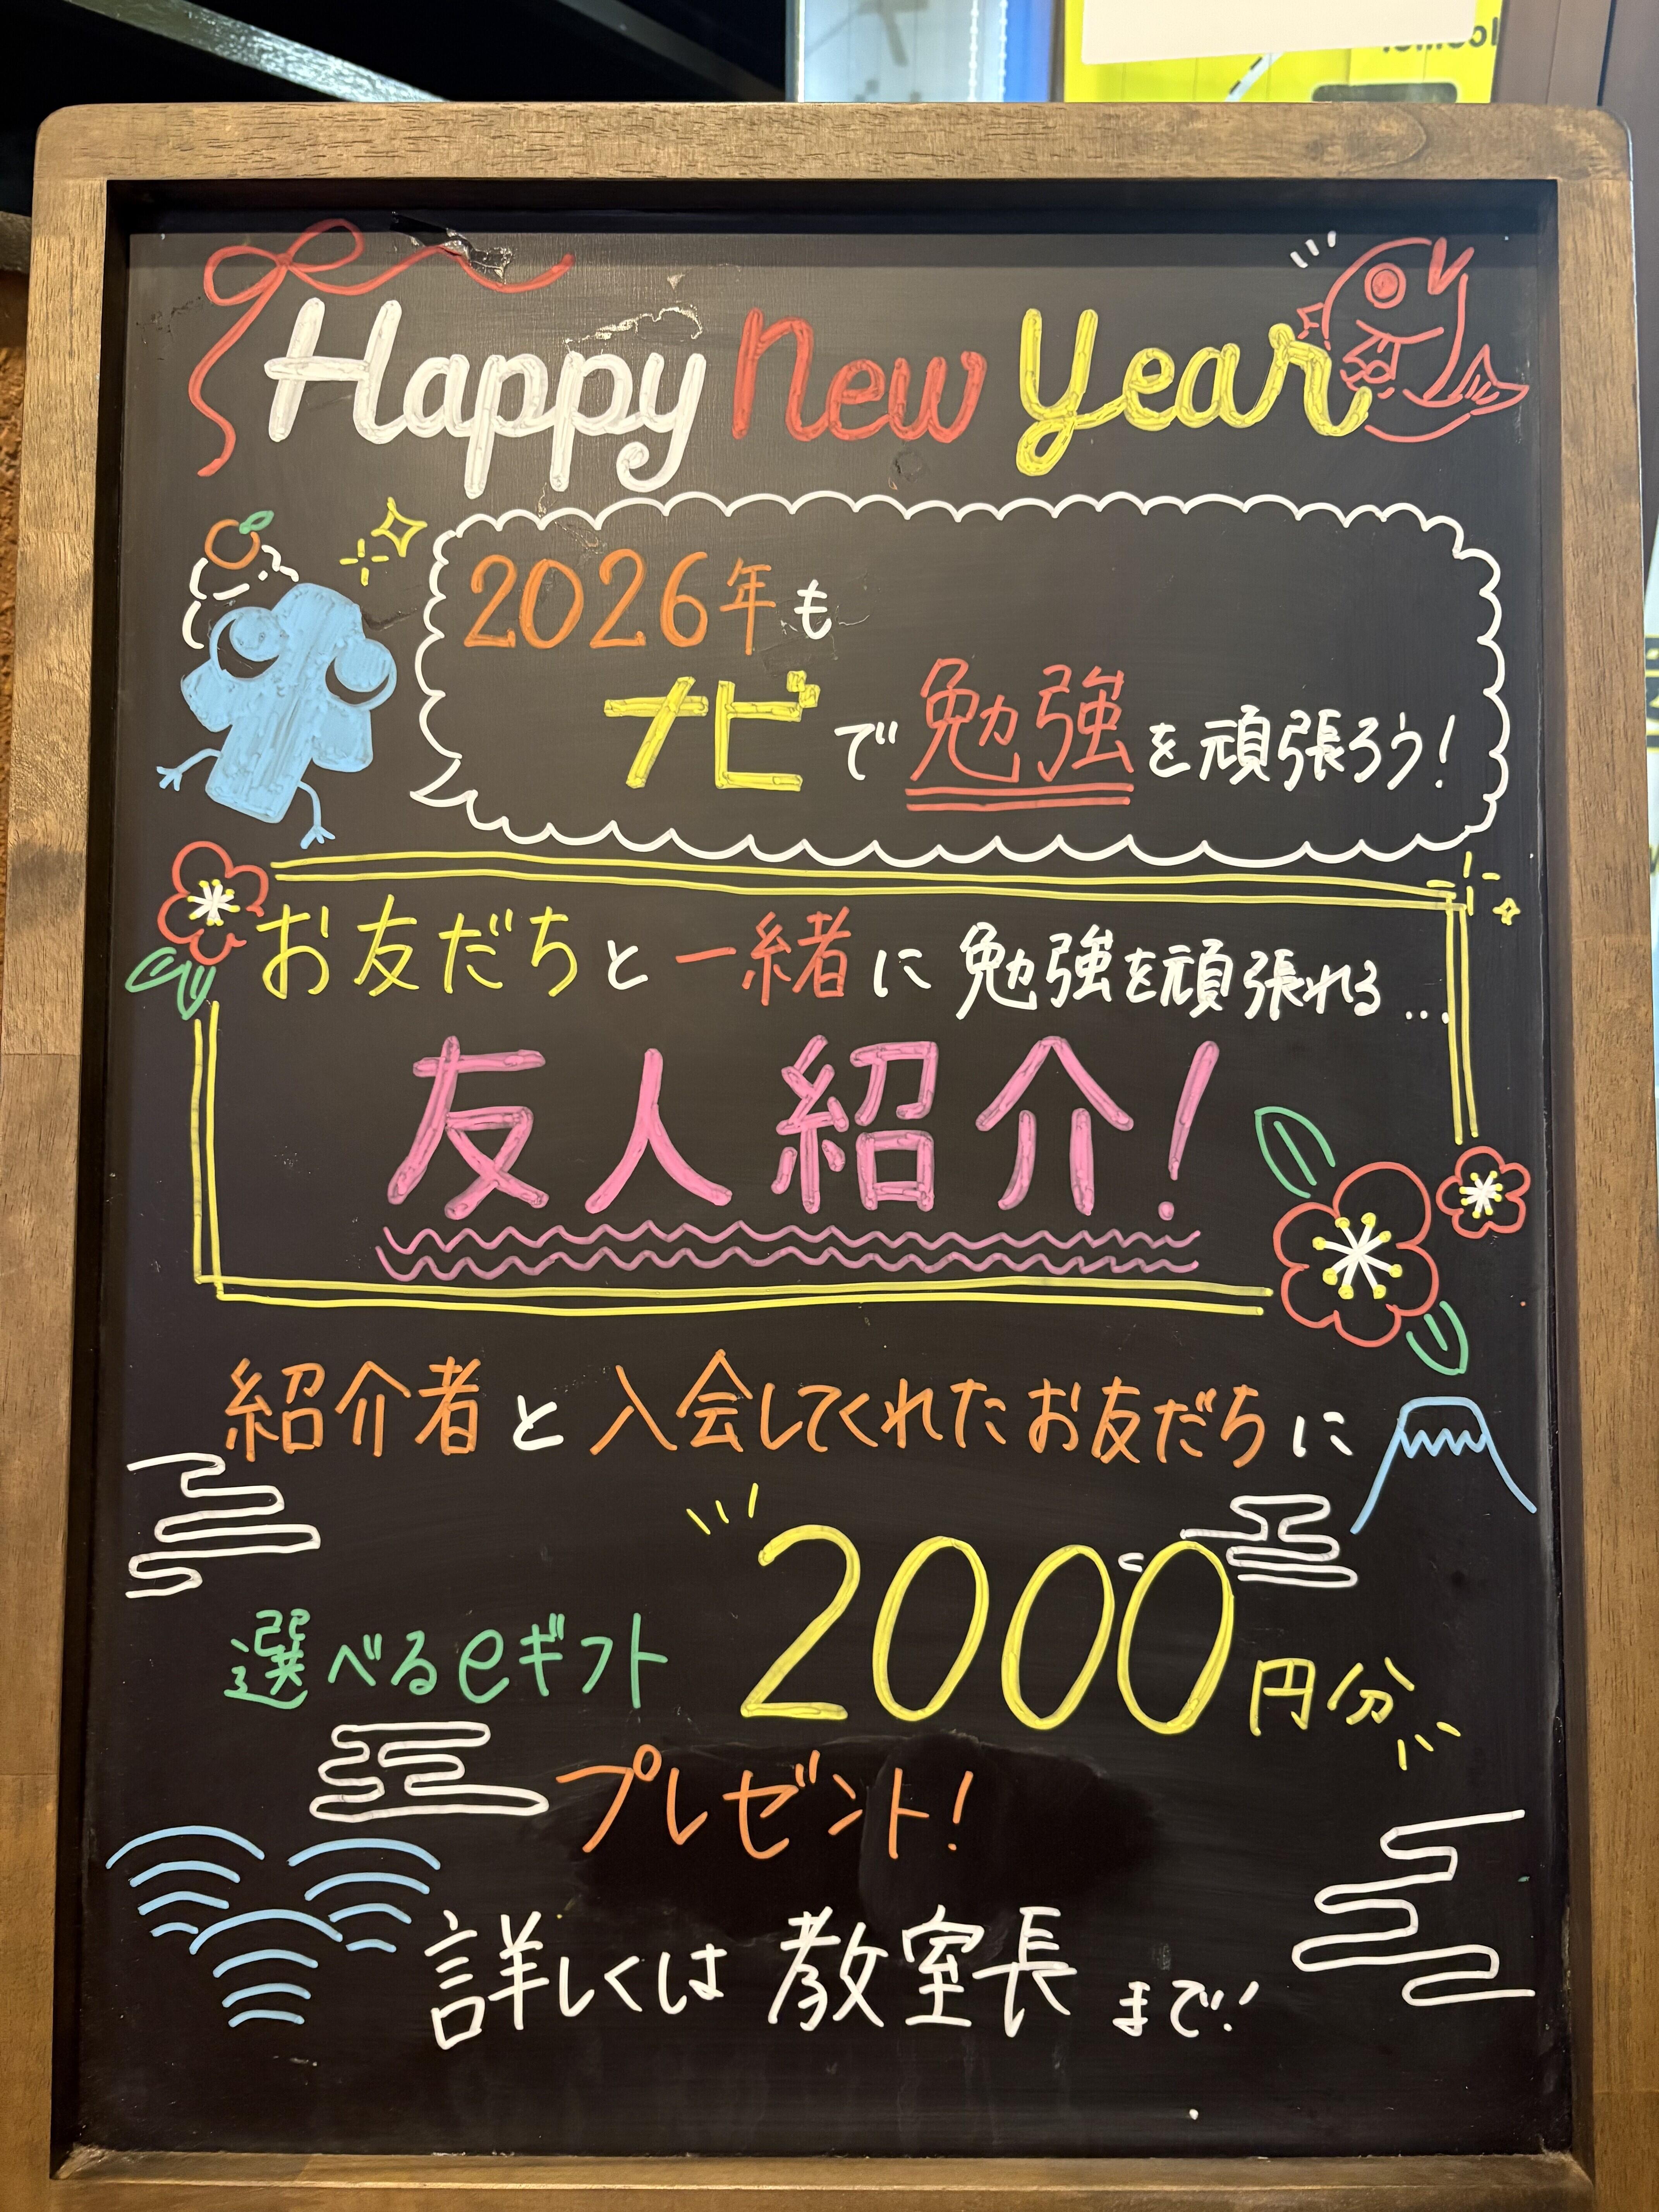 Happy New Year
2026年も
ナビで勉強を頑張ろう!
お友だちと一緒に勉強を頑張れる...
友人紹介!
紹介者と入会してくれたお友だちに
選べるeギフト 2000円分
プレゼント!
詳しくは教室長まで!